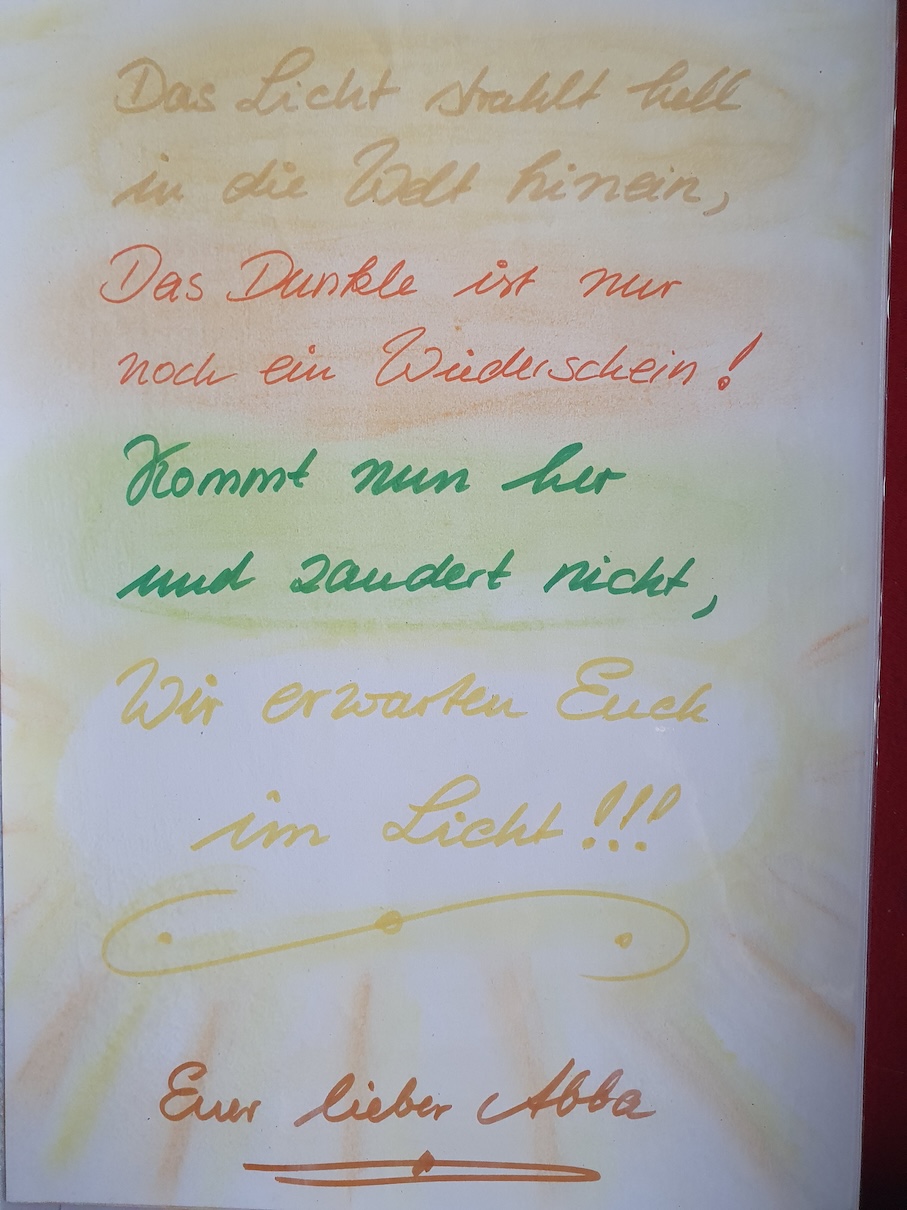 Das Licht strahlt hell
in die Welt hinein,
Das Dunkle ist nur
noch ein Wiederschein!
Kommt nun her
und zaudert nicht,
Wir erwarten Euch
im Licht!!!
Euer lieber Abba